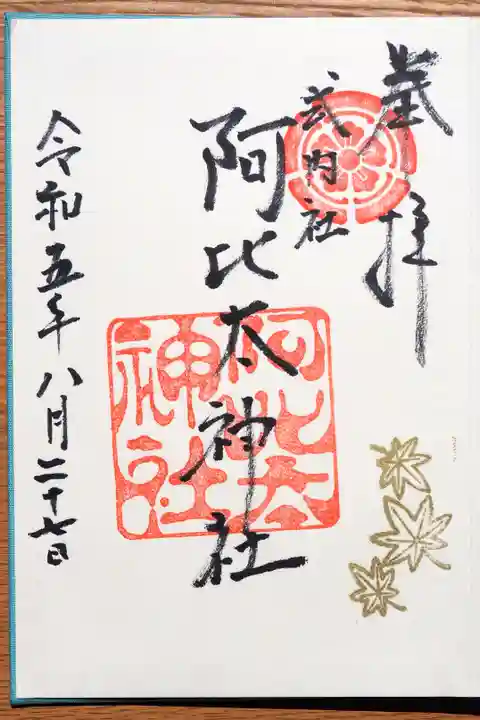 奉拝
式内社
阿比太神社
阿比太
神社
令和五年八月二十七日